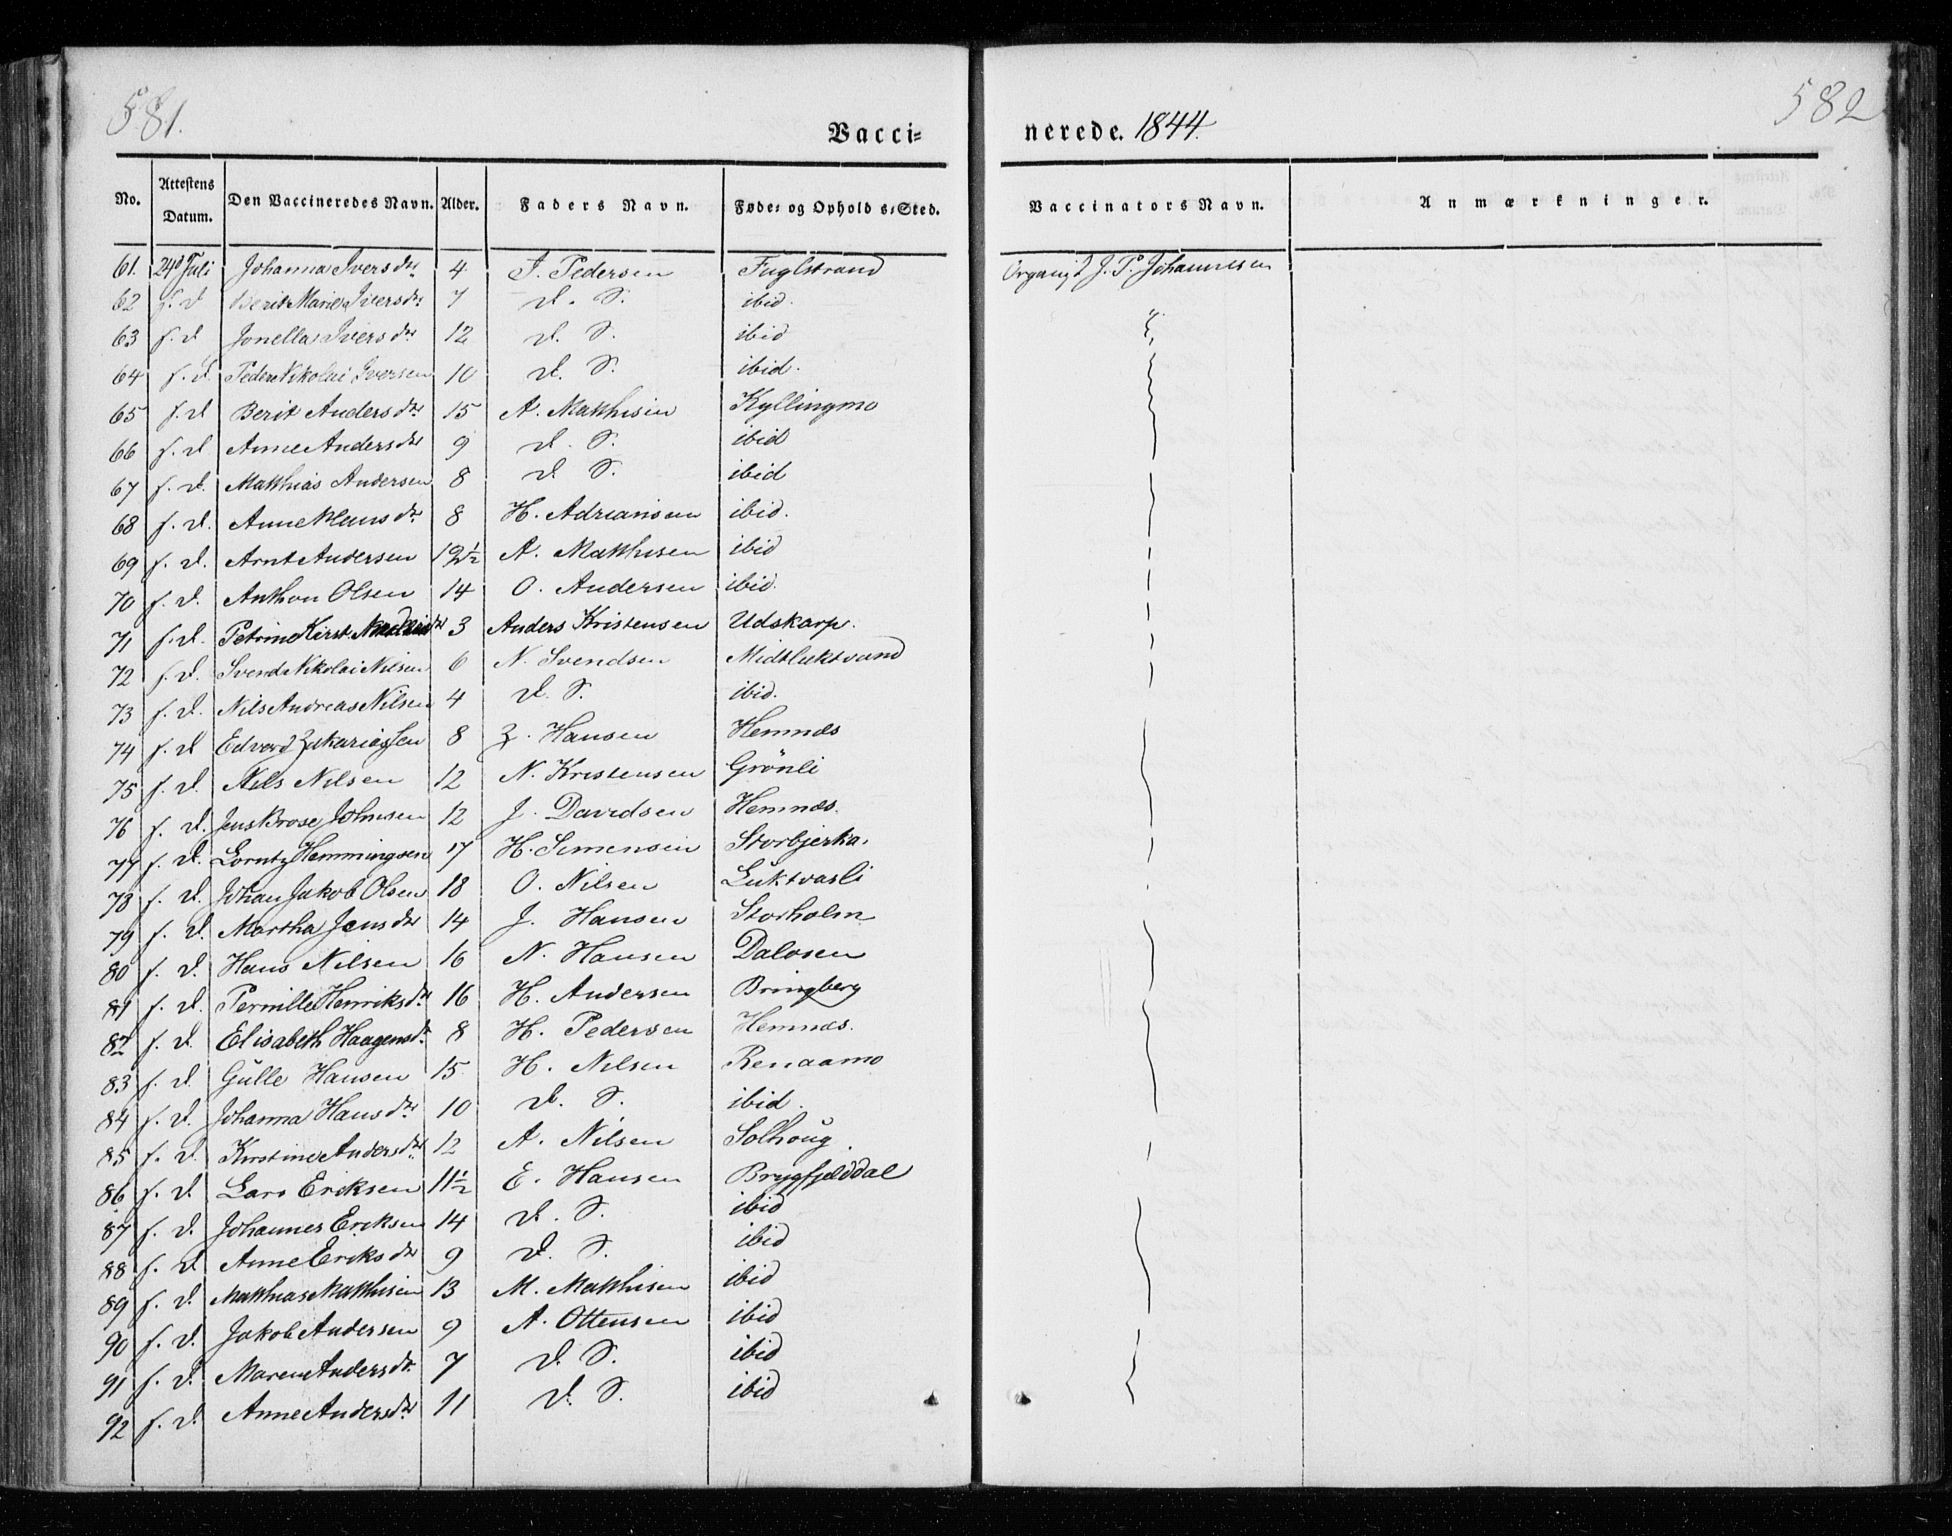 581.
582
Vacci-
nerede. 1844.
No. Attestens Datum. Den Vaccineredes Navn. Alder. Faders Navn. Føde- og Opholds-Sted. Vaccinators Navn. Anmærkninger.
61. 24d Juli Johanna Iversdtr 4 I. Pedersen Fuglstrand Organist J. P. Johannesen
62 f. d Berit Maria Iversdtr 7 d. S. ibid.
63 f. d Jonella Iversdtr 12 d. S. ibid
64 f. d. Peder Nikolai Iversen 10 d. S. ibid.
65 f. d Berit Andersdtr 15 A. Matthisen Kyllingmo
66 f. d Anne Andersdtr 9 d. S. ibid
67 f. d. Matthias Andersen 8 d. S. ibid
68 f. d. Anne Hansdtr 8 H. Adriansen ibid.
69 f. d. Arnt Andersen 12½ A. Matthisen ibid
70 f. d. Anthon Olsen 14 O. Andersen ibid.
71 f. d. Petrine Kirst. Andersdtr 3 Anders Kristensen Udskarp.
72 f. d. Svend Nikolai Nilsen 6 N. Svendsen Midtluktvand
73 f. d. Nils Andreas Nilsen 4 d. S. ibid.
74 f. d Edvard Zakariassen 8 Z. Hansen Hemnæs
75 f. d. Nils Nilsen 12 N. Kristensen Grönli
76 f. d. Jens Brose Johnsen 12 J. Davidsen Hemnæs.
77 f. d. Lorntz Hemmingsen 17 H. Simensen Storbjerka.
78 f. d. Johan Jakob Olsen 18 O. Nilsen Luktvasli
79 f. d. Martha Jensdtr 14 J. Hansen Storholm
80 f. d. Hans Nilsen 16 N. Hansen Dalosen
81 f. d. Pernille Henriksdtr 16 H. Andersen Bringberg
82 f. d. Elisabeth Haagensdtr. 8 H. Pedersen Hemnæs.
83 f. d. Gulle Hansen 15 H. Nilsen Renaamo
84 f. d. Johanna Hansdtr 10 d. S. ibid.
85 f. d. Kirstine Andersdtr 12 A. Nilsen Solhoug.
86 f. d. Lars Eriksen 11½ E. Hansen Brygfjelddal
87 f. d. Johannes Eriksen 14 d. S. ibid
88 f. d. Anne Eriksdtr 9 d. S. ibid
89 f. d. Matthias Matthisen 13 M. Matthisen ibid
90 f. d. Jakob Andersen 9 A. Ottensen ibid
91 f. d. Maren Andersdtr. 7 d. S. ibid
92 f. d. Anne Andersdtr 11 d. S. ibid